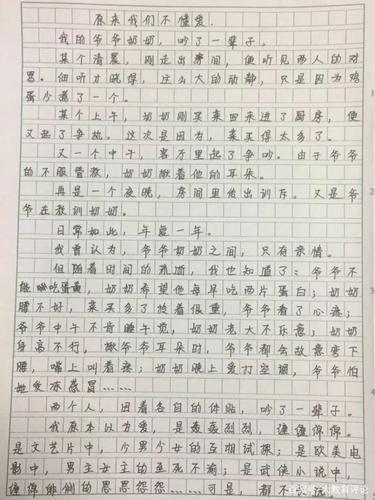 原来我们不懂爱.
我的爷爷奶奶，吵了一辈子。
某个清晨，刚走出房间，便听见两人的对
骂。细听才晓得，这么大的动静，只是因为鸡
蛋少煮了一个。
某个上午，奶奶刚买菜回来进了厨房，便
又起了争执。这次是因为，菜买得太多了。
又一个中午，客厅里起了争吵。由于爷爷
的不服管教，奶奶揪着他的耳朵。
再是一个夜晚，房间里传出训斥。又是爷
爷在教训奶奶。
日常如此，年复一年。
我曾认为，爷爷奶奶之间，只有亲情。
但随着时间的推施，我也知道了：爷爷不
能吃蛋黄，奶奶希望他每早吃两片蛋白；奶奶
腰不好，菜买多了拎着很重，爷爷看了心疼；
爷爷中午不肯睡午觉，奶奶老大不乐意；奶奶
身高不行，揪爷爷耳朵时，爷爷都会故意弯下
腰，嘴上叫着疼；奶奶晚上爱打空调，爷爷怕
她受冻感冒……
两个人，因着各自的体贴，吵了一辈子。
我原本以为，爱，是轰轰烈烈，缠缠绵绵。
是文艺片中，少男少女的互相试探；是欧美电
影中，男主女主的至死不渝；是武侠小说中，
缠绵悱恻的恩恩怨怨……可是，都不